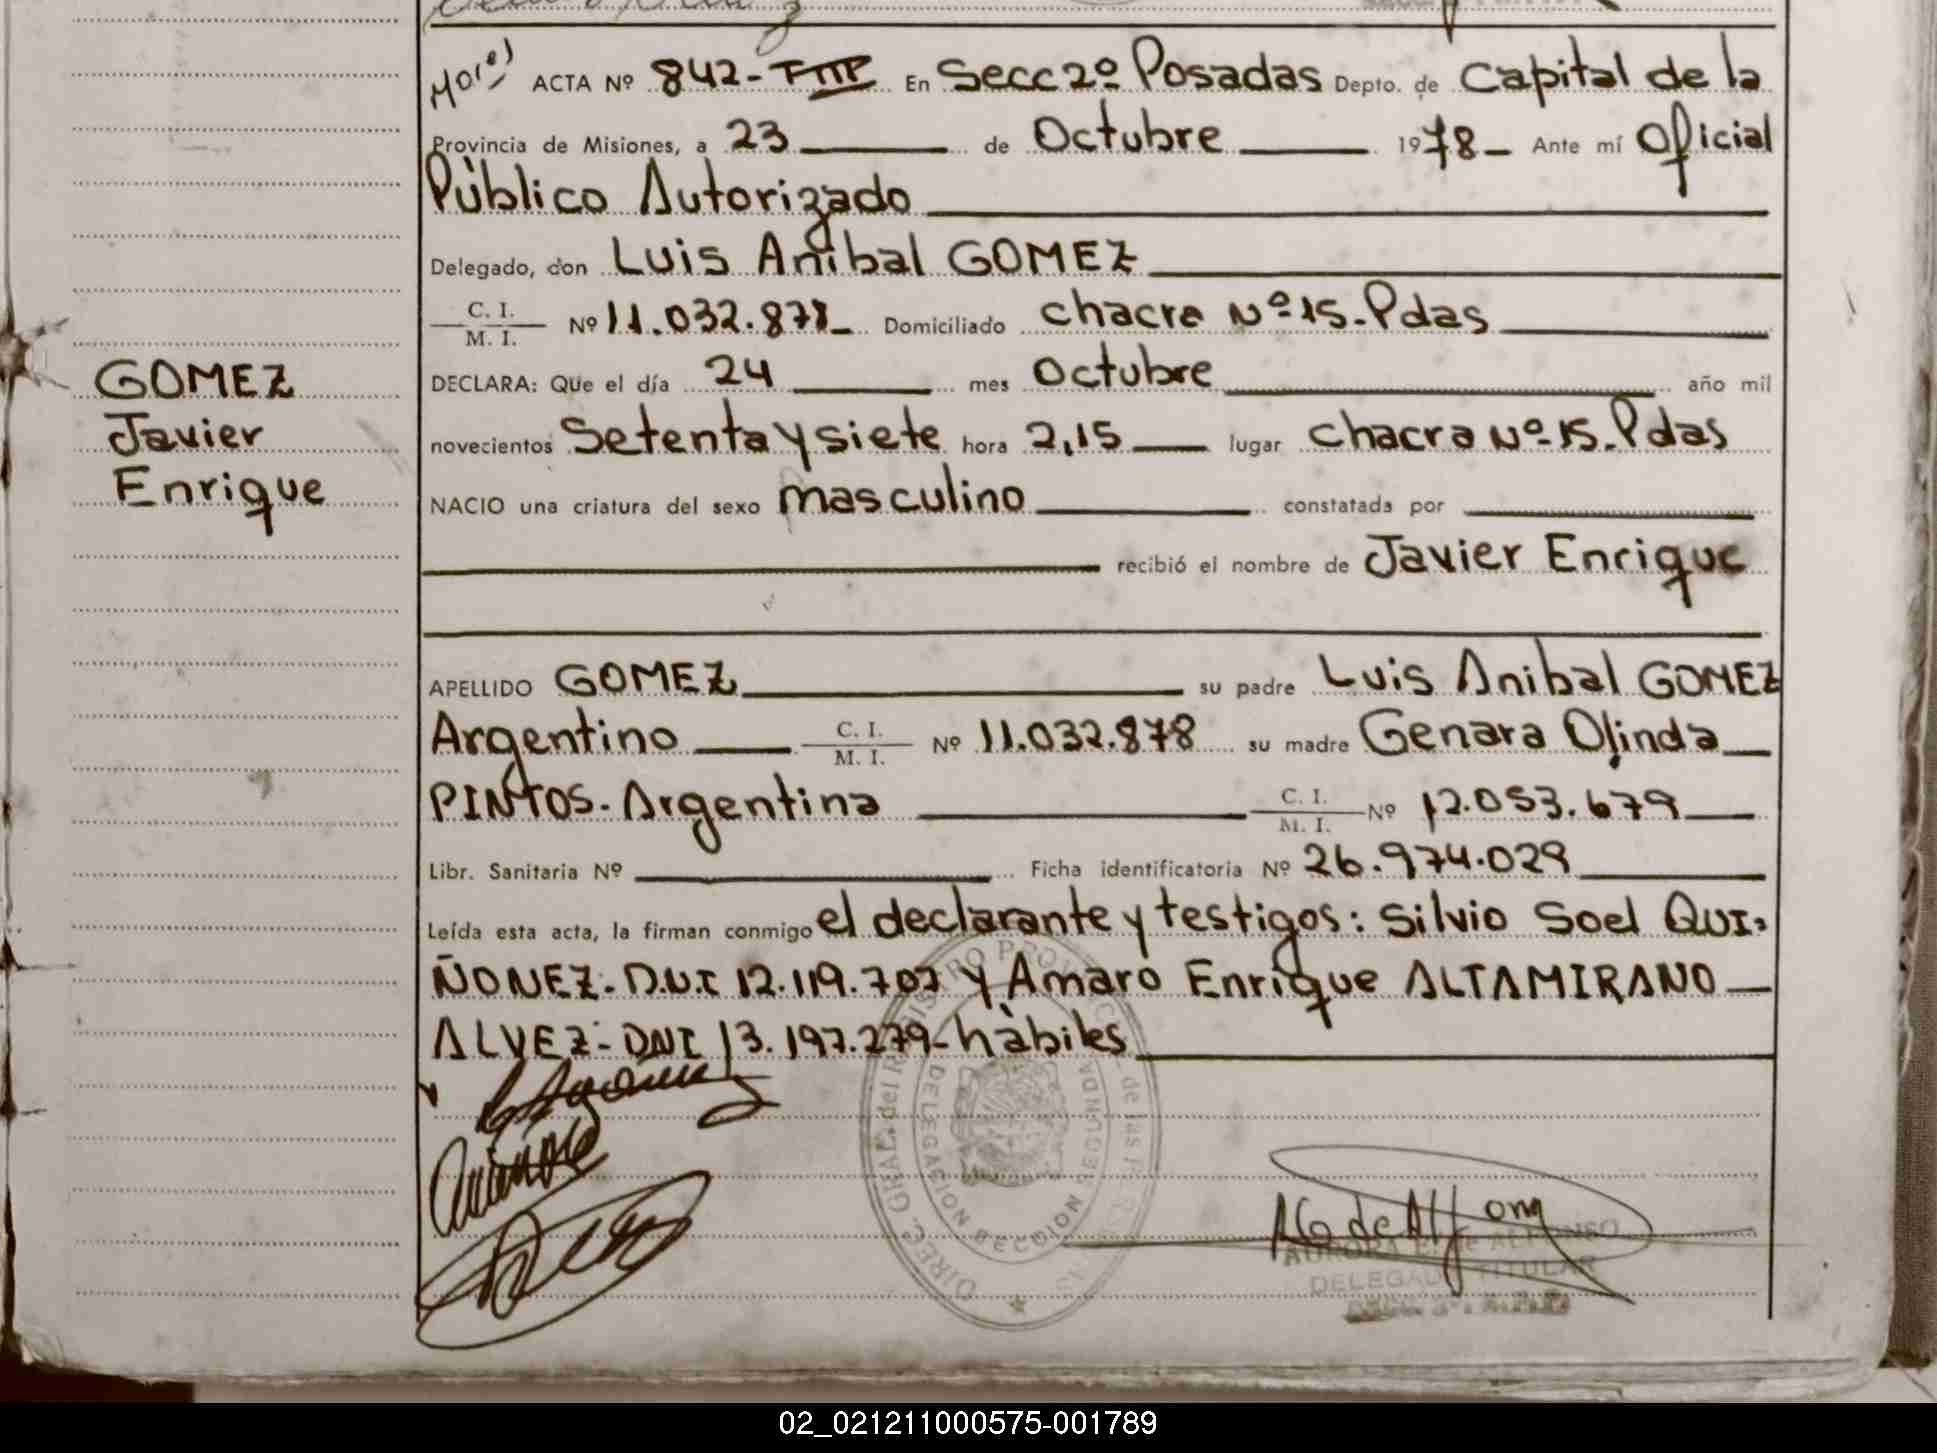 ACTA Nº 842-TIIP En Secc 2º Posadas Depto. de Capital de la
Provincia de Misiones, a 23 de Octubre 1978 Ante mí Oficial
Público Autorizado
Delegado, don Luis Anibal GOMEZ
C. I.
M. I. Nº 11.032.878 Domiciliado chacra Nº 15.Pdas
GOMEZ
Javier
Enrique
DECLARA: Que el día 24 mes Octubre año mil
novecientos Setenta y siete hora 2,15 lugar chacra Nº 15.Pdas
NACIO una criatura del sexo masculino constatada por
recibió el nombre de Javier Enrique
APELLIDO GOMEZ su padre Luis Anibal GOMEZ
Argentino C. I. M. I. Nº 11.032.878 su madre Genara Olinda
PINTOS. Argentina C. I. M. I. Nº 12.053.679
Libr. Sanitaria Nº Ficha identificatoria Nº 26.974.029
Leída esta acta, la firman conmigo el declarante y testigos: Silvio Soel QUI=
ÑONEZ. D.N.I 12.119.707 y Amaro Enrique ALTAMIRANO
ALVEZ- DNI 13.197.279- hàbiles
DELEGACION SECCION SEGUNDA
AURORA DE ALFONSO
DELEGADA TITULAR
02_021211000575-001789